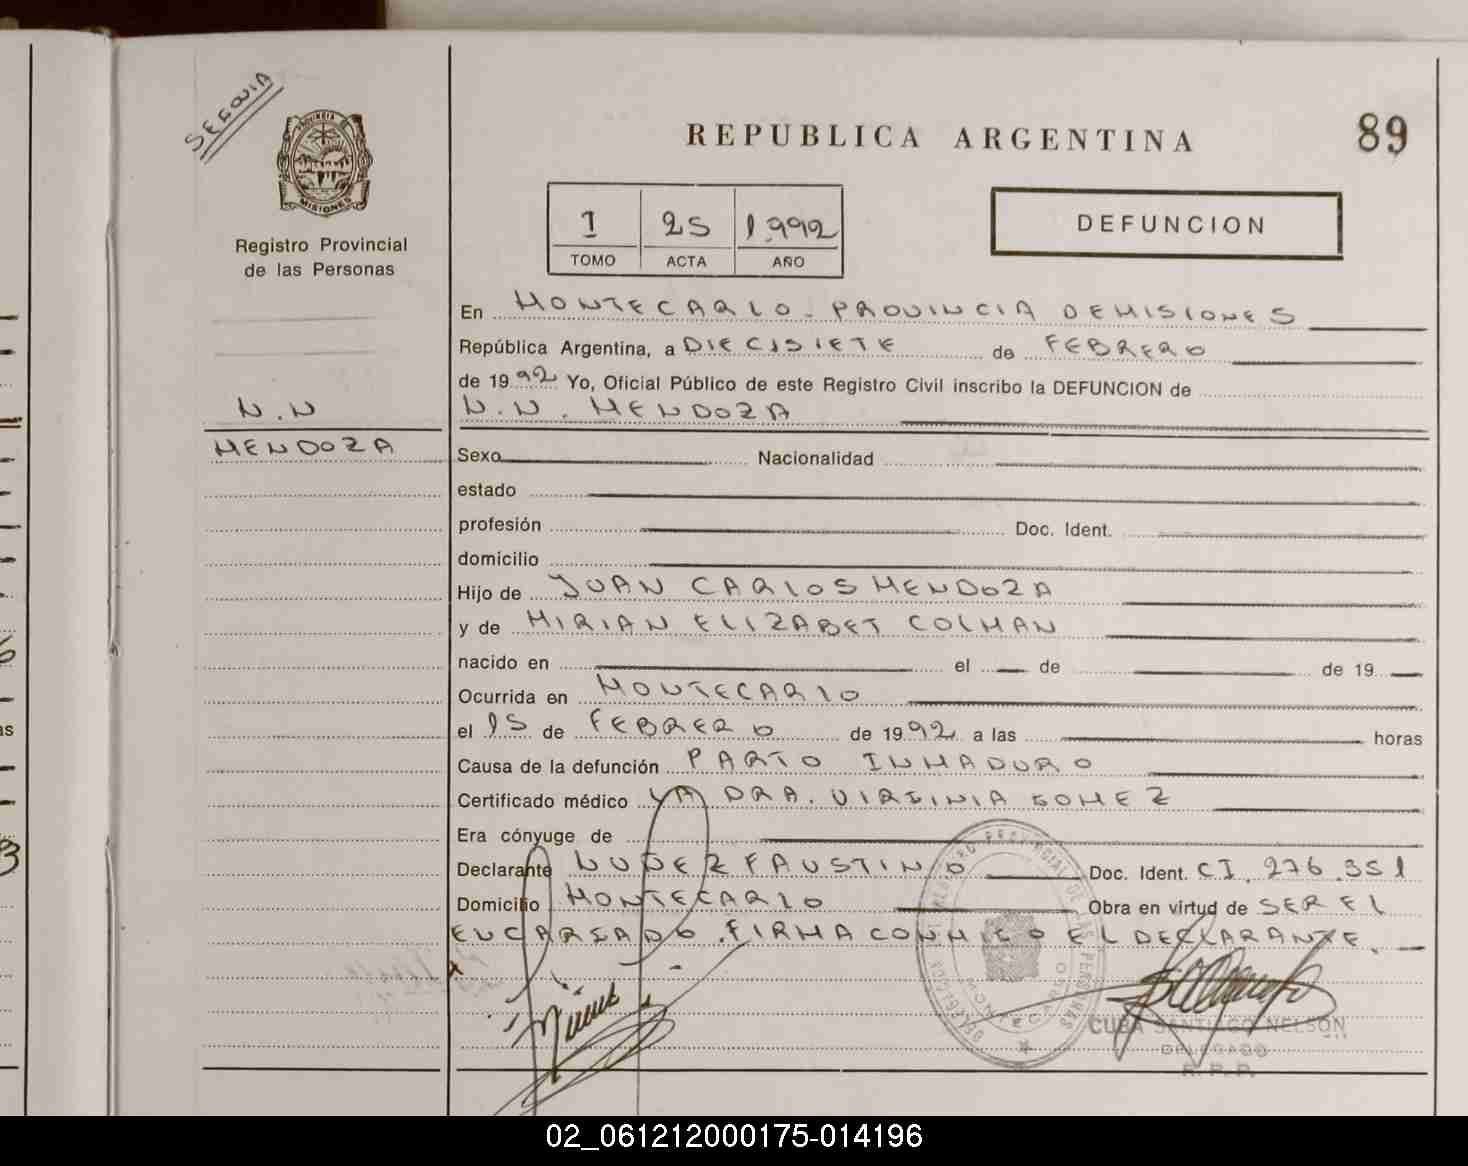 SEGOVIA
PROVINCIA DE
MISIONES
Registro Provincial
de las Personas
N.N
MENDOZA
REPUBLICA ARGENTINA
89
1 25 1.992
TOMO ACTA AÑO
DEFUNCION
En MONTECARLO - PROVINCIA DE MISIONES
República Argentina, a DIECISIETE de FEBRERO
de 1992 Yo, Oficial Público de este Registro Civil inscribo la DEFUNCION de
N.N. MENDOZA
Sexo Nacionalidad
estado
profesión Doc. Ident.
domicilio
Hijo de JUAN CARLOS MENDOZA
y de MIRIAN ELIZABET COLMAN
nacido en el de de 19
Ocurrida en MONTECARLO
el 15 de FEBRERO de 1992 a las horas
Causa de la defunción PARTO INMADURO
Certificado médico LA DRA. VIRGINIA GOMEZ
Era cónyuge de
Declarante NUÑEZ FAUSTINO Doc. Ident. CI. 276.351
Domicilio MONTECARLO Obra en virtud de SER EL
ENCARGADO. FIRMA CONMIGO EL DECLARANTE.
CUBA SANTIAGO NELSON
DELEGADO
R. P. P.
02_061212000175-014196